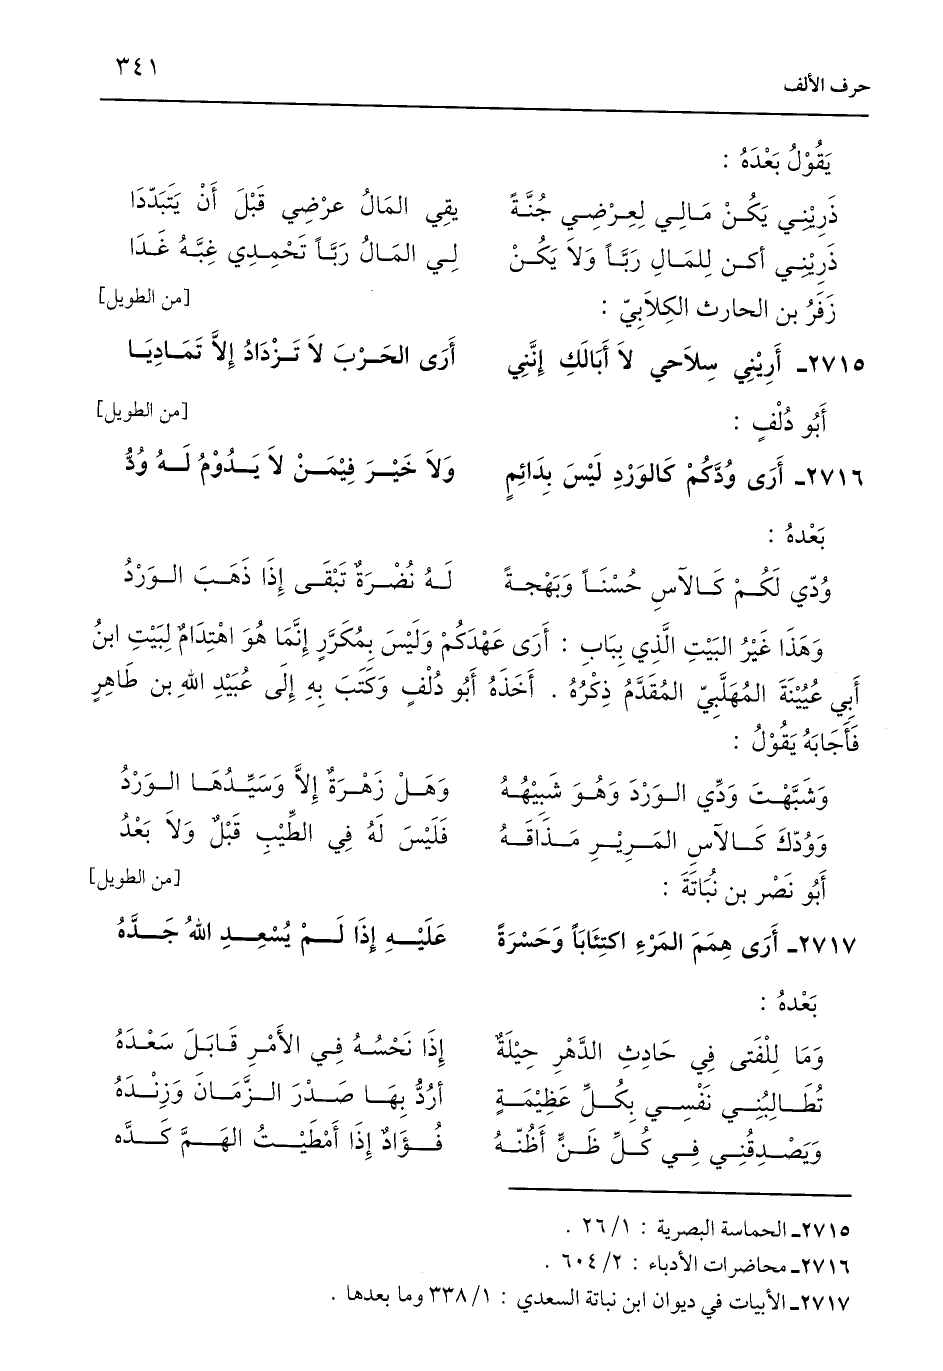 ٣٤١
حرف الألف
يَقُوْلُ بَعْدَهُ :
ذَرِيْنِي يَكُنْ مَالِي لِعِرْضِي جُنَّةً يقِي المَالُ عرْضِي قَبْلَ أَنْ يَتَبَدَّدَا
ذَرِيْنِي أكن لِلمَالِ رَبَّاً وَلاَ يَكُنْ لِي المَالُ رَبَّاً تَحْمِدِي غِبَّهُ غَدَا
زَفَرُ بن الحارث الكِلاَبِيّ : [من الطويل]
٢٧١٥ـ أَرِيْنِي سِلاَحي لاَ أَبَالَكِ إِنَّنِي أَرَى الحَرْبَ لاَ تَزْدَادُ إِلاَّ تَمَادِيَا
أَبُو دُلْفٍ : [من الطويل]
٢٧١٦ـ أَرَى وُدَّكُمْ كَالوَرْدِ لَيْسَ بِدَائِمٍ وَلاَ خَيْرَ فِيْمَنْ لاَ يَدُوْمُ لَهُ وُدُّ
بَعْدهُ :
وُدّي لَكُمْ كَالآسِ حُسْنَاً وَبَهْجةً لَهُ نُضْرَةٌ تَبْقَى إِذَا ذَهَبَ الوَرْدُ
وَهَذَا غَيْرُ البَيْتِ الَّذِي بِبَابِ : أَرَى عَهْدَكُمْ وَلَيْسَ بِمُكَرَّرٍ إِنَّمَا هُوَ اهْتِدَامٌ لِبَيْتِ ابنُ
أَبِي عُيَيْنَةَ المُهَلَّبِيّ المُقَدَّمُ ذِكْرُهُ . أَخَذَهُ أَبُو دُلْفٍ وَكَتَبَ بِهِ إِلَى عُبَيْدِ اللهِ بن طَاهِرٍ
فَأَجَابَهُ يَقُوْلُ :
وَشَبَّهْتَ وَدِّي الوَرْدَ وَهُوَ شَبِيْهُهُ وَهَلْ زَهْرَةٌ إِلاَّ وَسَيِّدُهَا الوَرْدُ
وَوُدّكَ كَالآسِ المَرِيْرِ مَذَاقَهُ فَلَيْسَ لَهُ فِي الطِّيْبِ قَبْلٌ وَلاَ بَعْدُ
أَبُو نَصْرِ بن نُبَاتَةَ : [من الطويل]
٢٧١٧ـ أَرَى هِمَمَ المَرْءِ اكتِئَابَاً وَحَسْرَةً عَلَيْهِ إِذَا لَمْ يُسْعِدِ اللهُ جَدَّهُ
بَعْدهُ :
وَمَا لِلْفَتى فِي حَادِثِ الدَّهْرِ حِيْلَةٌ إِذَا نَحْسُهُ فِي الأَمْرِ قَابَلَ سَعْدَهُ
تُطَالِبُنِي نَفْسِي بِكُلِّ عَظِيْمَةٍ أَرُدُّ بِهَا صَدْرَ الزَّمَانَ وَزِنْدَهُ
وَيَصْدِقُنِي فِي كُلِّ ظَنٍّ أَظُنّهُ فُؤَادٌ إِذَا أَمْطَيْتُ الهَمَّ كَدَّه
٢٧١٥ـ الحماسة البصرية : ٢٦/١ .
٢٧١٦ـ محاضرات الأدباء : ٦٠٤/٢ .
٢٧١٧ـ الأبيات في ديوان ابن نباتة السعدي : ٣٣٨/١ وما بعدها .